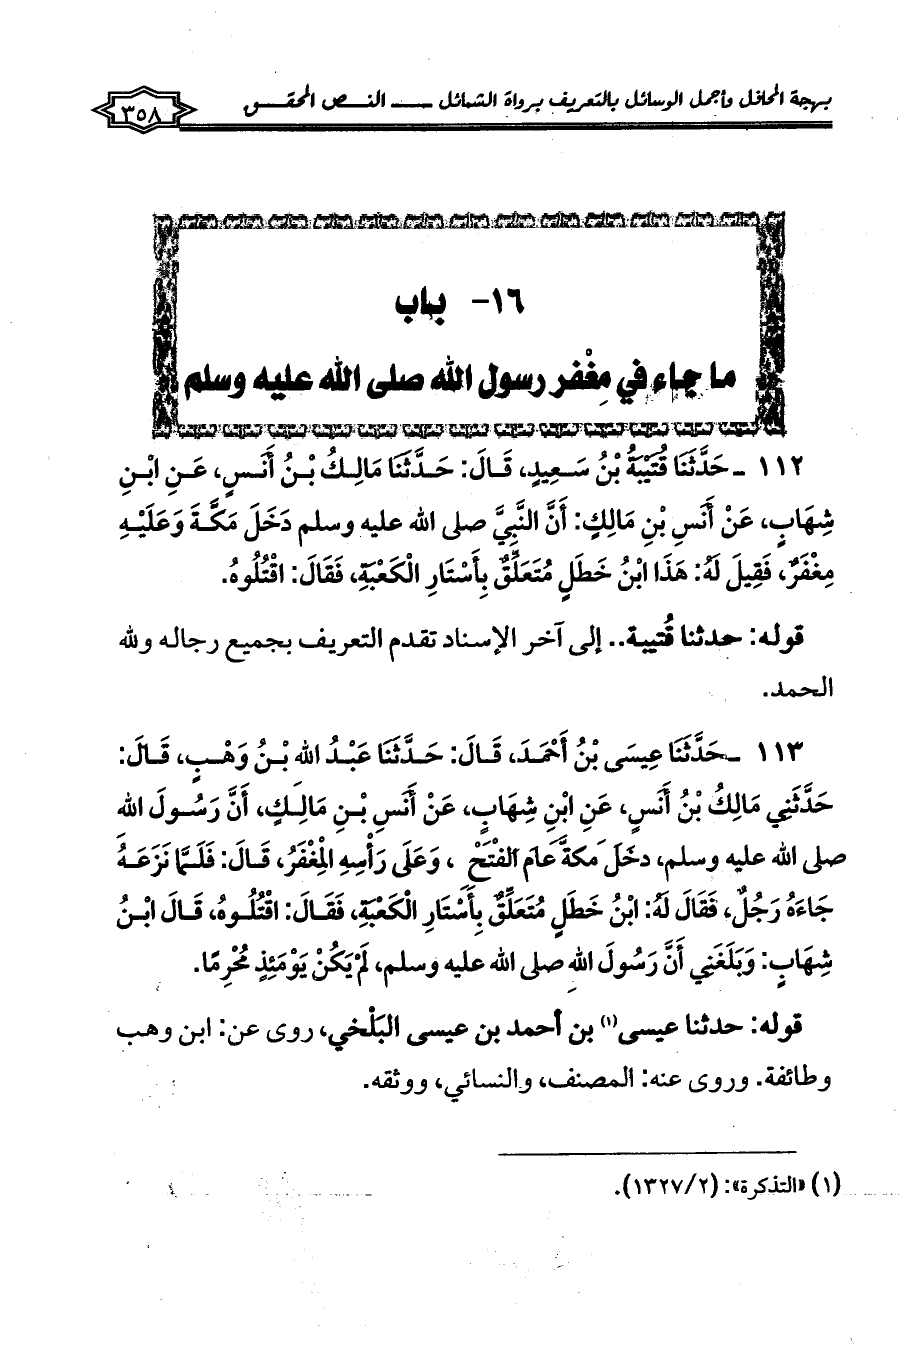 بهجة المحافل وأجمل الوسائل بالتعريف برواة الشمائل ـــ النص المحقق
٣٥٨
١٦- باب
ما جاء في مِغْفر رسول الله صلى الله عليه وسلم
١١٢ ـ حَدَّثَنَا قُتَيْبَةُ بْنُ سَعِيدٍ، قَالَ: حَدَّثَنَا مَالِكُ بْنُ أَنَسٍ، عَنِ ابْنِ
شِهَابٍ، عَنْ أَنَسِ بْنِ مَالِكٍ: أَنَّ النَّبِيَّ صلى الله عليه وسلم دَخَلَ مَكَّةَ وَعَلَيْهِ
مِغْفَرٌ، فَقِيلَ لَهُ: هَذَا ابْنُ خَطَلٍ مُتَعَلِّقٌ بِأَسْتَارِ الْكَعْبَةِ، فَقَالَ: اقْتُلُوهُ.
قوله: حدثنا قُتيبة.. إلى آخر الإسناد تقدم التعريف بجميع رجاله ولله
الحمد.
١١٣ ـ حَدَّثَنَا عِيسَى بْنُ أَحْمَدَ، قَالَ: حَدَّثَنَا عَبْدُ الله بْنُ وَهْبٍ، قَالَ:
حَدَّثَنِي مَالِكُ بْنُ أَنَسٍ، عَنِ ابْنِ شِهَابٍ، عَنْ أَنَسِ بْنِ مَالِكٍ، أَنَّ رَسُولَ الله
صلى الله عليه وسلم، دخَلَ مَكةَ عَامَ الفَتْحِ ، وَعَلَى رَأْسِهِ الْمِغْفَرُ، قَالَ: فَلَمَّا نَزَعَهُ
جَاءَهُ رَجُلٌ، فَقَالَ لَهُ: ابْنُ خَطَلٍ مُتَعَلِّقٌ بِأَسْتَارِ الْكَعْبَةِ، فَقَالَ: اقْتُلُوهُ، قَالَ ابْنُ
شِهَابٍ: وَبَلَغَنِي أَنَّ رَسُولَ الله صلى الله عليه وسلم، لَمْ يَكُنْ يَوْمَئِذٍ مُحْرِمًا.
قوله: حدثنا عيسى(١) بن أحمد بن عيسى البَلْخي، روى عن: ابن وهب
وطائفة. وروى عنه: المصنف، والنسائي، ووثقه.
(١) «التذكرة»: (٢/ ١٣٢٧).